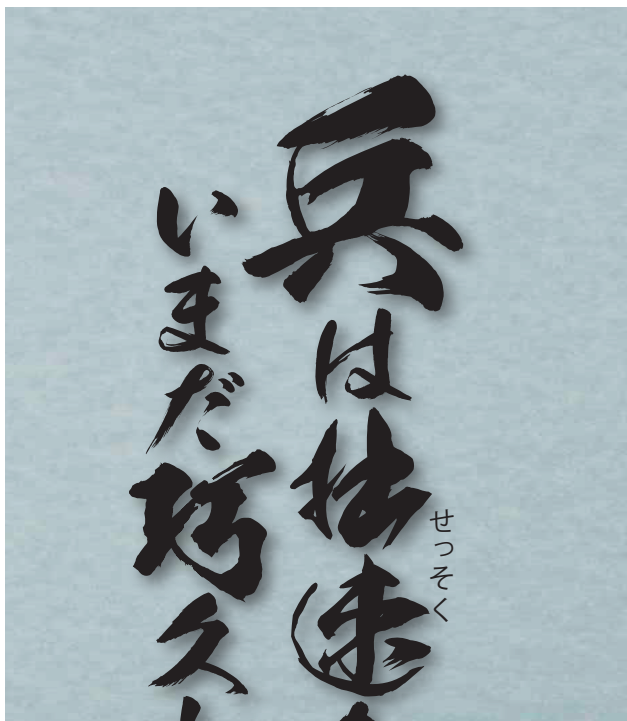 兵は拙速
せっそく
いまだ巧久